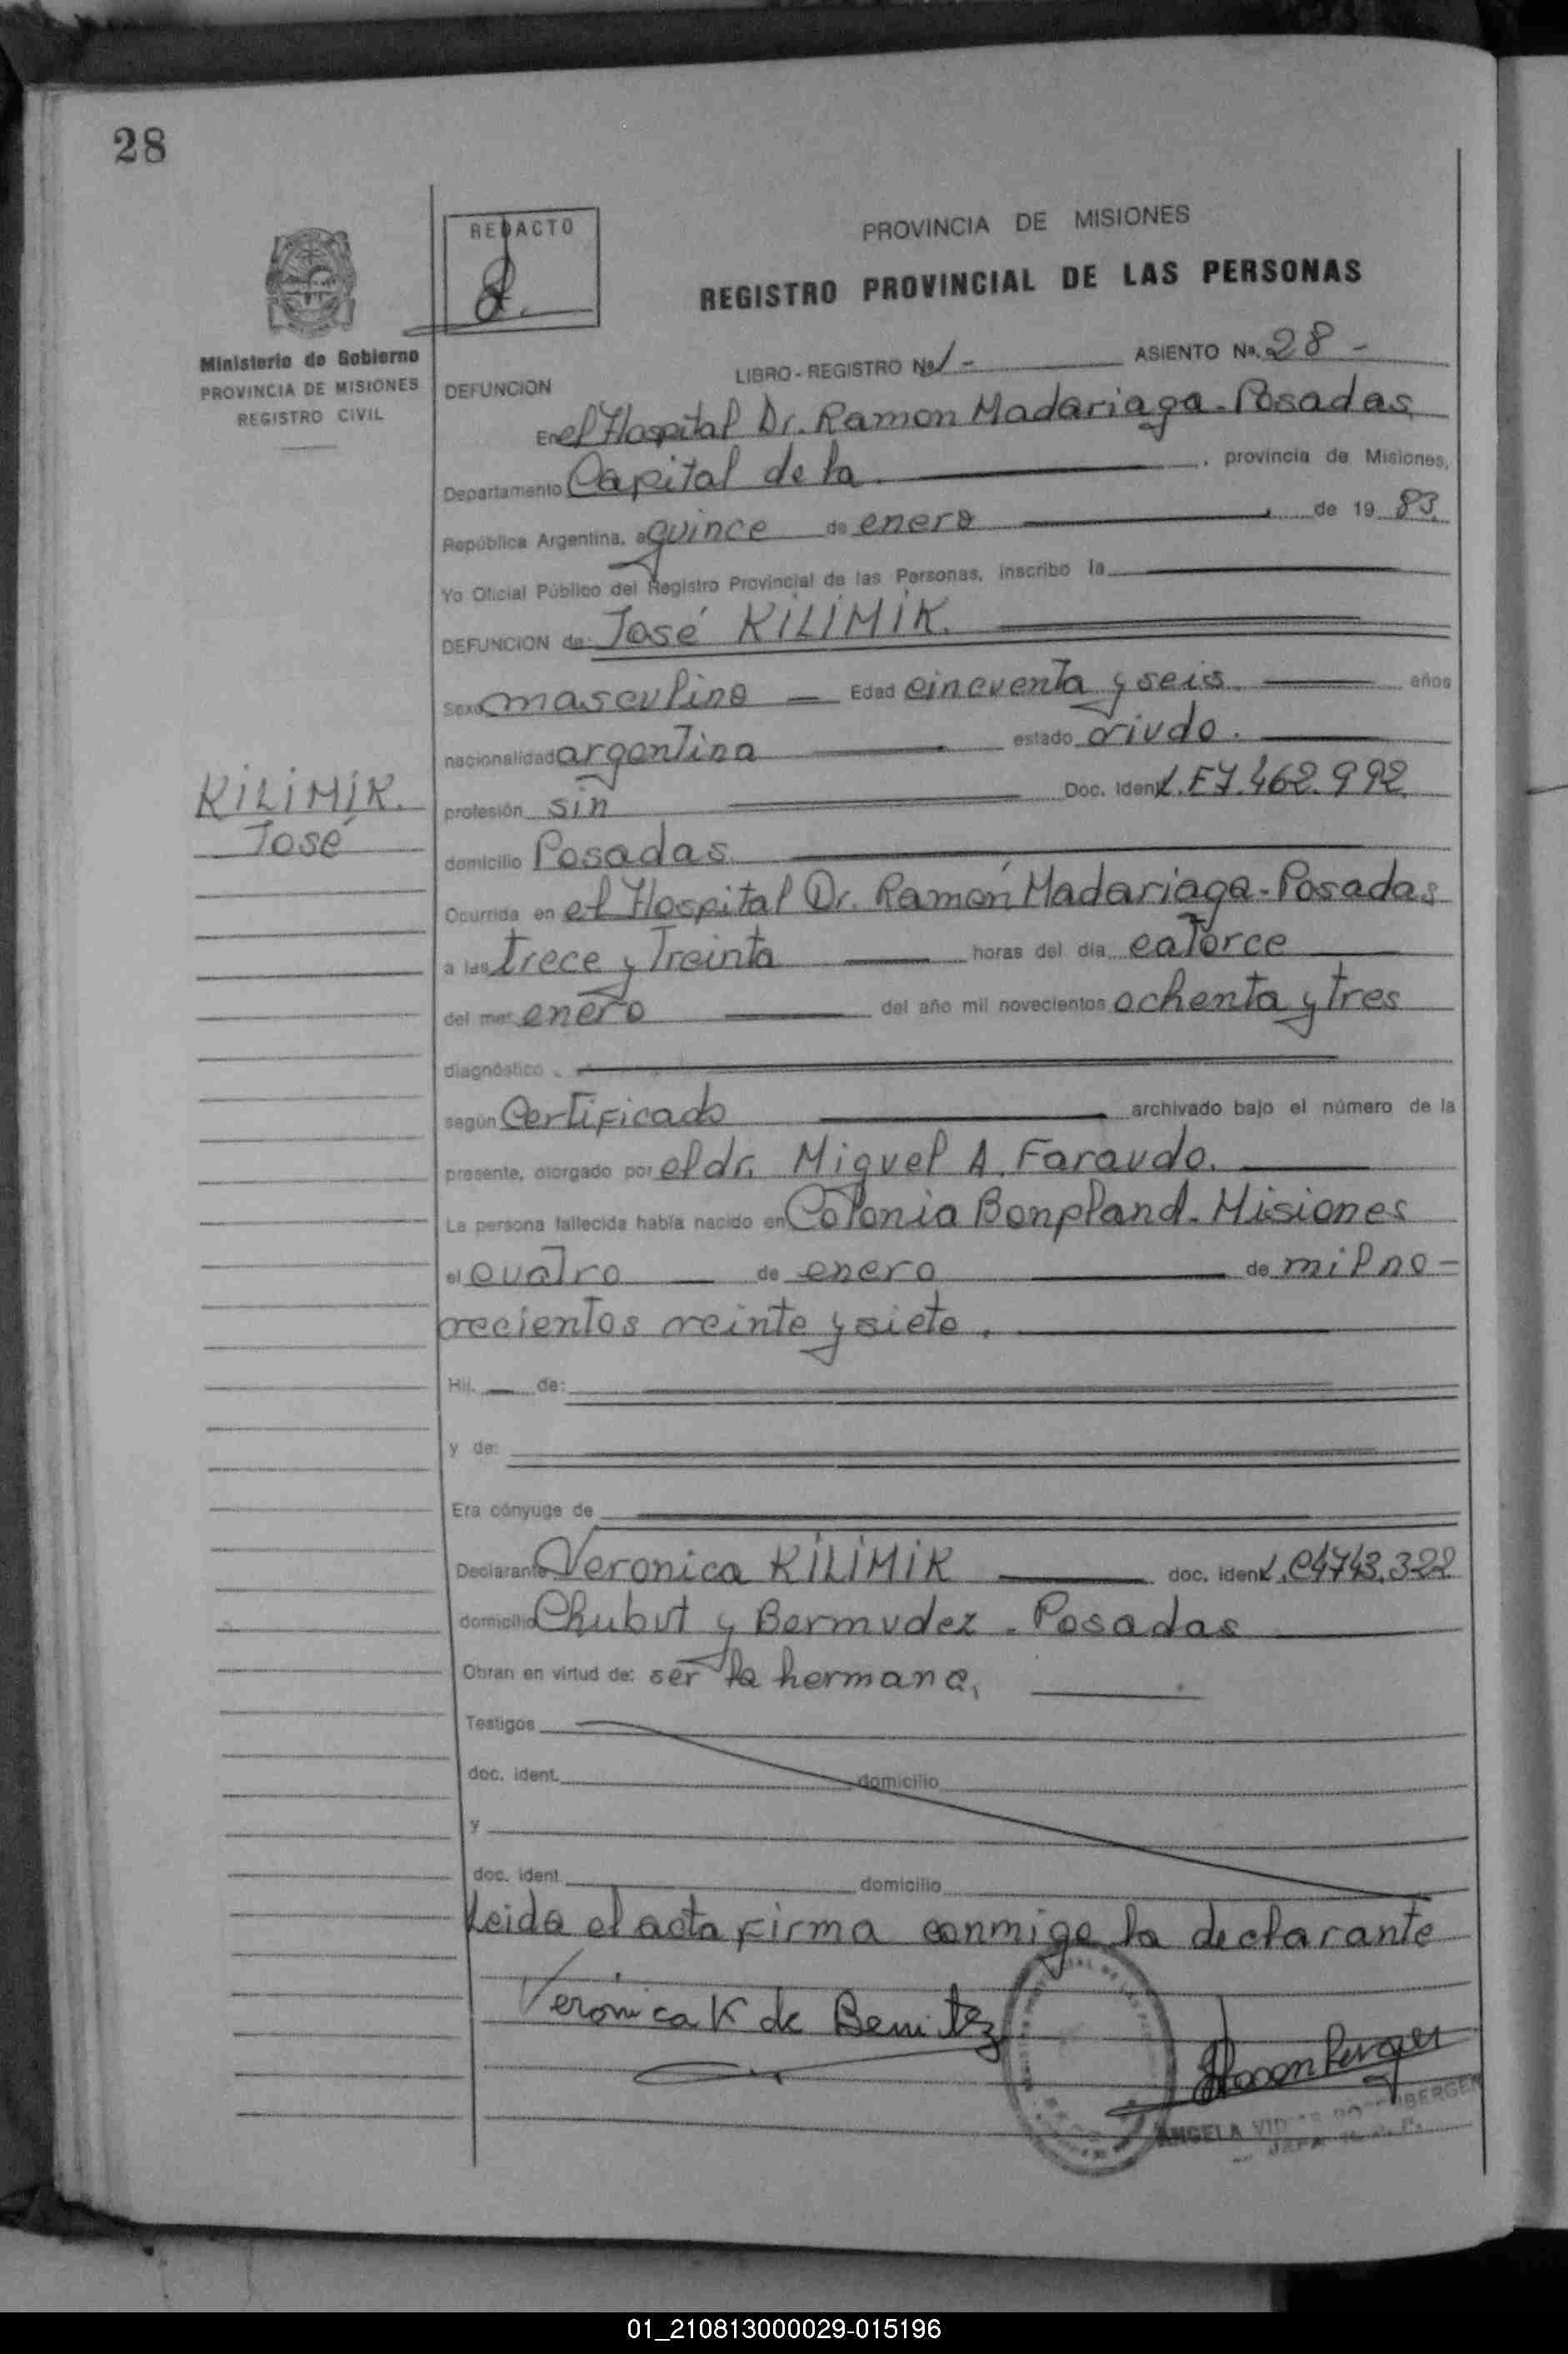 28
REDACTO
PROVINCIA DE MISIONES
REGISTRO PROVINCIAL DE LAS PERSONAS
Ministerio de Gobierno
PROVINCIA DE MISIONES
REGISTRO CIVIL
LIBRO - REGISTRO Nº 1 - ASIENTO Nº. 28 -
DEFUNCION
En el Hospital Dr. Ramon Madariaga - Posadas
Departamento Capital de la , provincia de Misiones,
República Argentina, a quince de enero de 19 83
Yo Oficial Público del Registro Provincial de las Personas, inscribo la
DEFUNCION de: José KILIMIK.
Sexo masculino Edad cincuenta y seis años
nacionalidad argentina estado viudo.
KILIMIK.
José
profesión sin Doc. Ident. L.E 7.462.992
domicilio Posadas
Ocurrida en el Hospital Dr. Ramón Madariaga - Posadas
a las trece y treinta horas del día catorce
del mes enero del año mil novecientos ochenta y tres
diagnóstico
según Certificado archivado bajo el número de la
presente, otorgado por el dr. Miguel A. Faraudo.
La persona fallecida había nacido en Colonia Bonpland - Misiones
el cuatro de enero de mil no-
vecientos veinte y siete.
Hij. de:
y de:
Era cónyuge de
Declarante Veronica KILIMIK doc. ident. L.C 4743.322
domicilio Chubut y Bermudez - Posadas
Obran en virtud de: ser la hermana,
Testigos
doc. ident. domicilio
y
doc. ident. domicilio
Leida el acta firma conmigo la declarante
Verónica K de Benitez
ANGELA
01_210813000029-015196